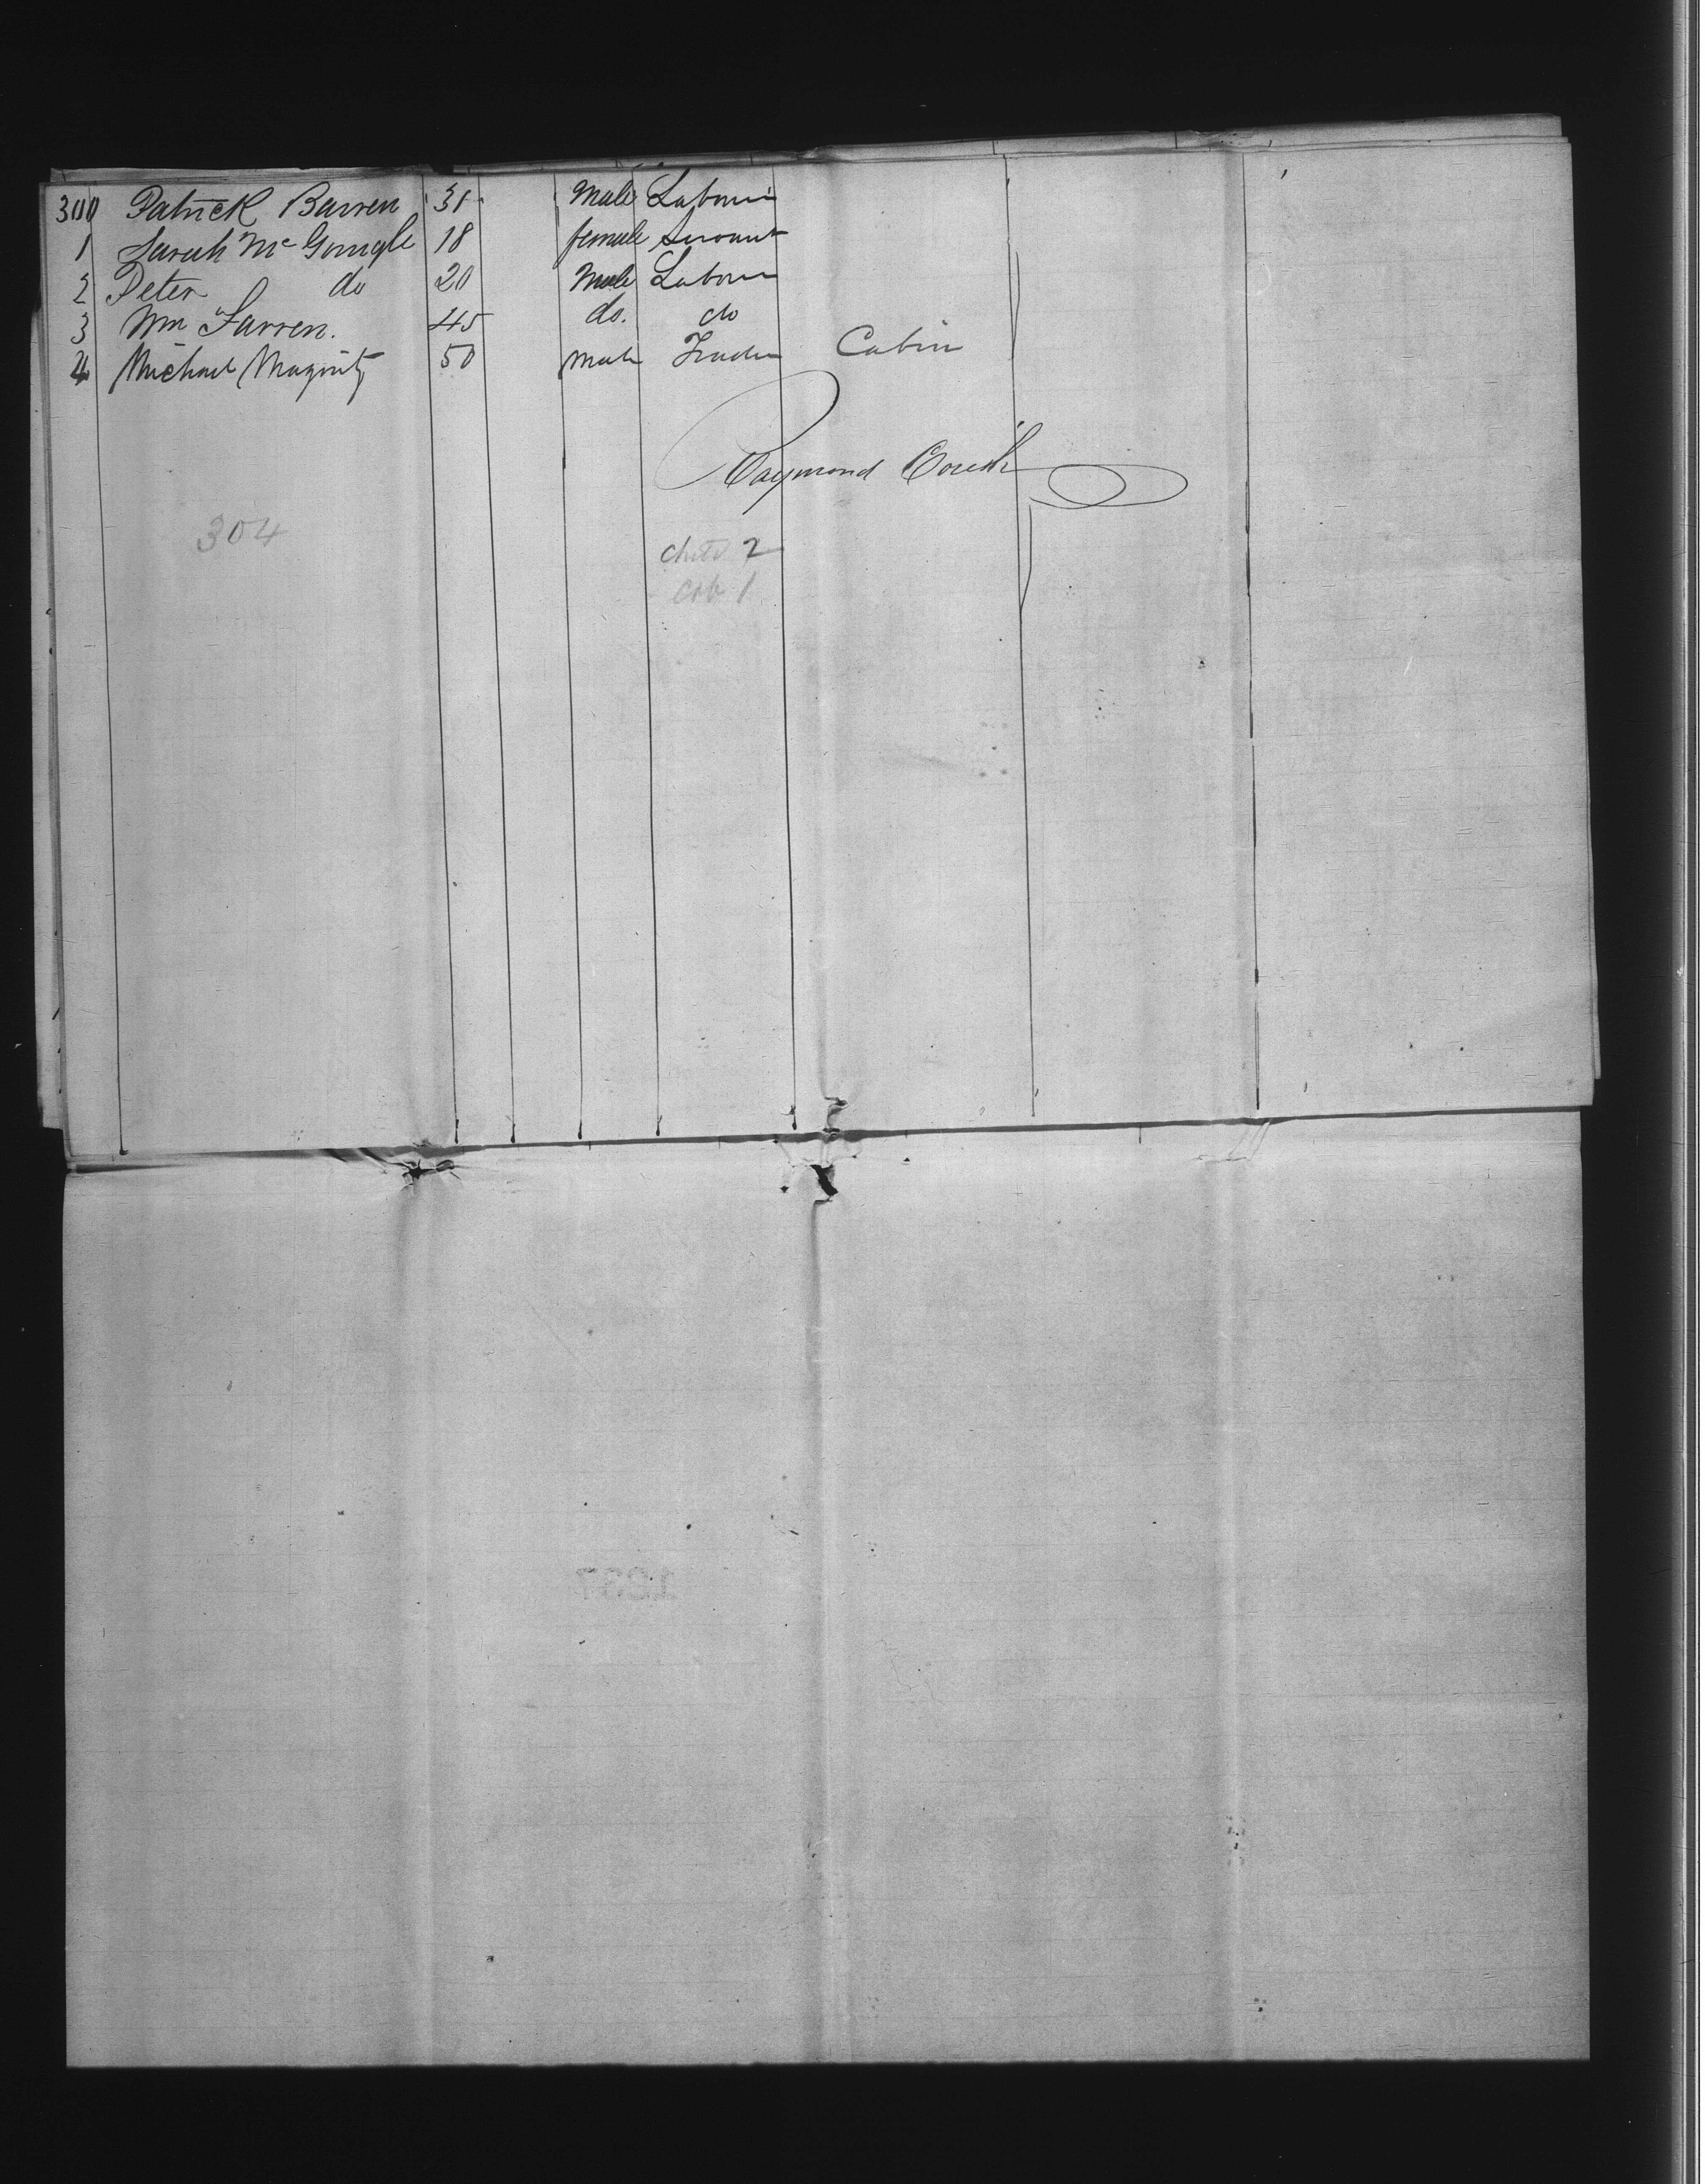 300 Patrick Barren 31 Male Labourer
1 Sarah McGonagle 18 female Servant
2 Peter do 20 Male Labourer
3 Wm Farren. 45 do. do
4 Michael 50 male Trader Cabin
Raymond
304
2
cab 1